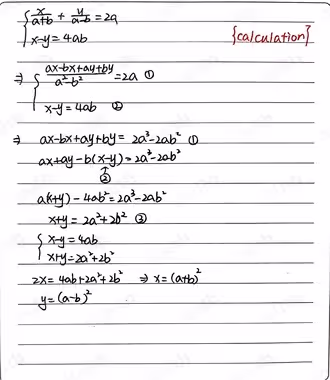 { x/(a+b) + y/(a-b) = 2a
x-y = 4ab
{calculation}
⇒ { (ax-bx+ay+by)/(a²-b²) = 2a ①
x-y = 4ab ②
⇒ ax-bx+ay+by = 2a³-2ab² ①
ax+ay-b(x-y) = 2a³-2ab²
↑
②
a(x+y) - 4ab² = 2a³-2ab²
x+y = 2a²+2b² ③
{ x-y = 4ab
x+y = 2a²+2b²
2x = 4ab+2a²+2b² ⇒ x = (a+b)²
y = (a-b)²